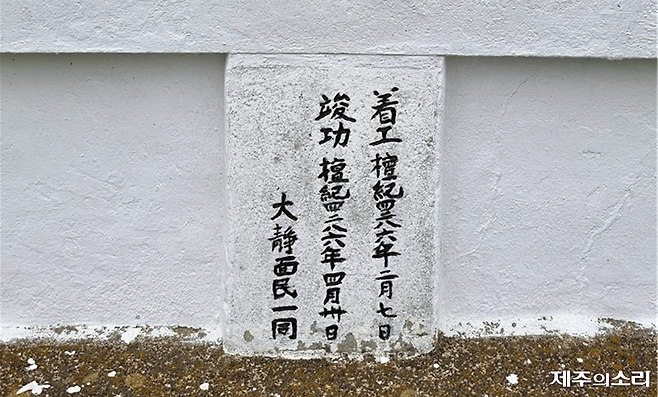 着工 檀紀四二八六年 二月 七日
竣功 檀紀四二八六年 四月 卅日
大靜面民一同
제주의소리